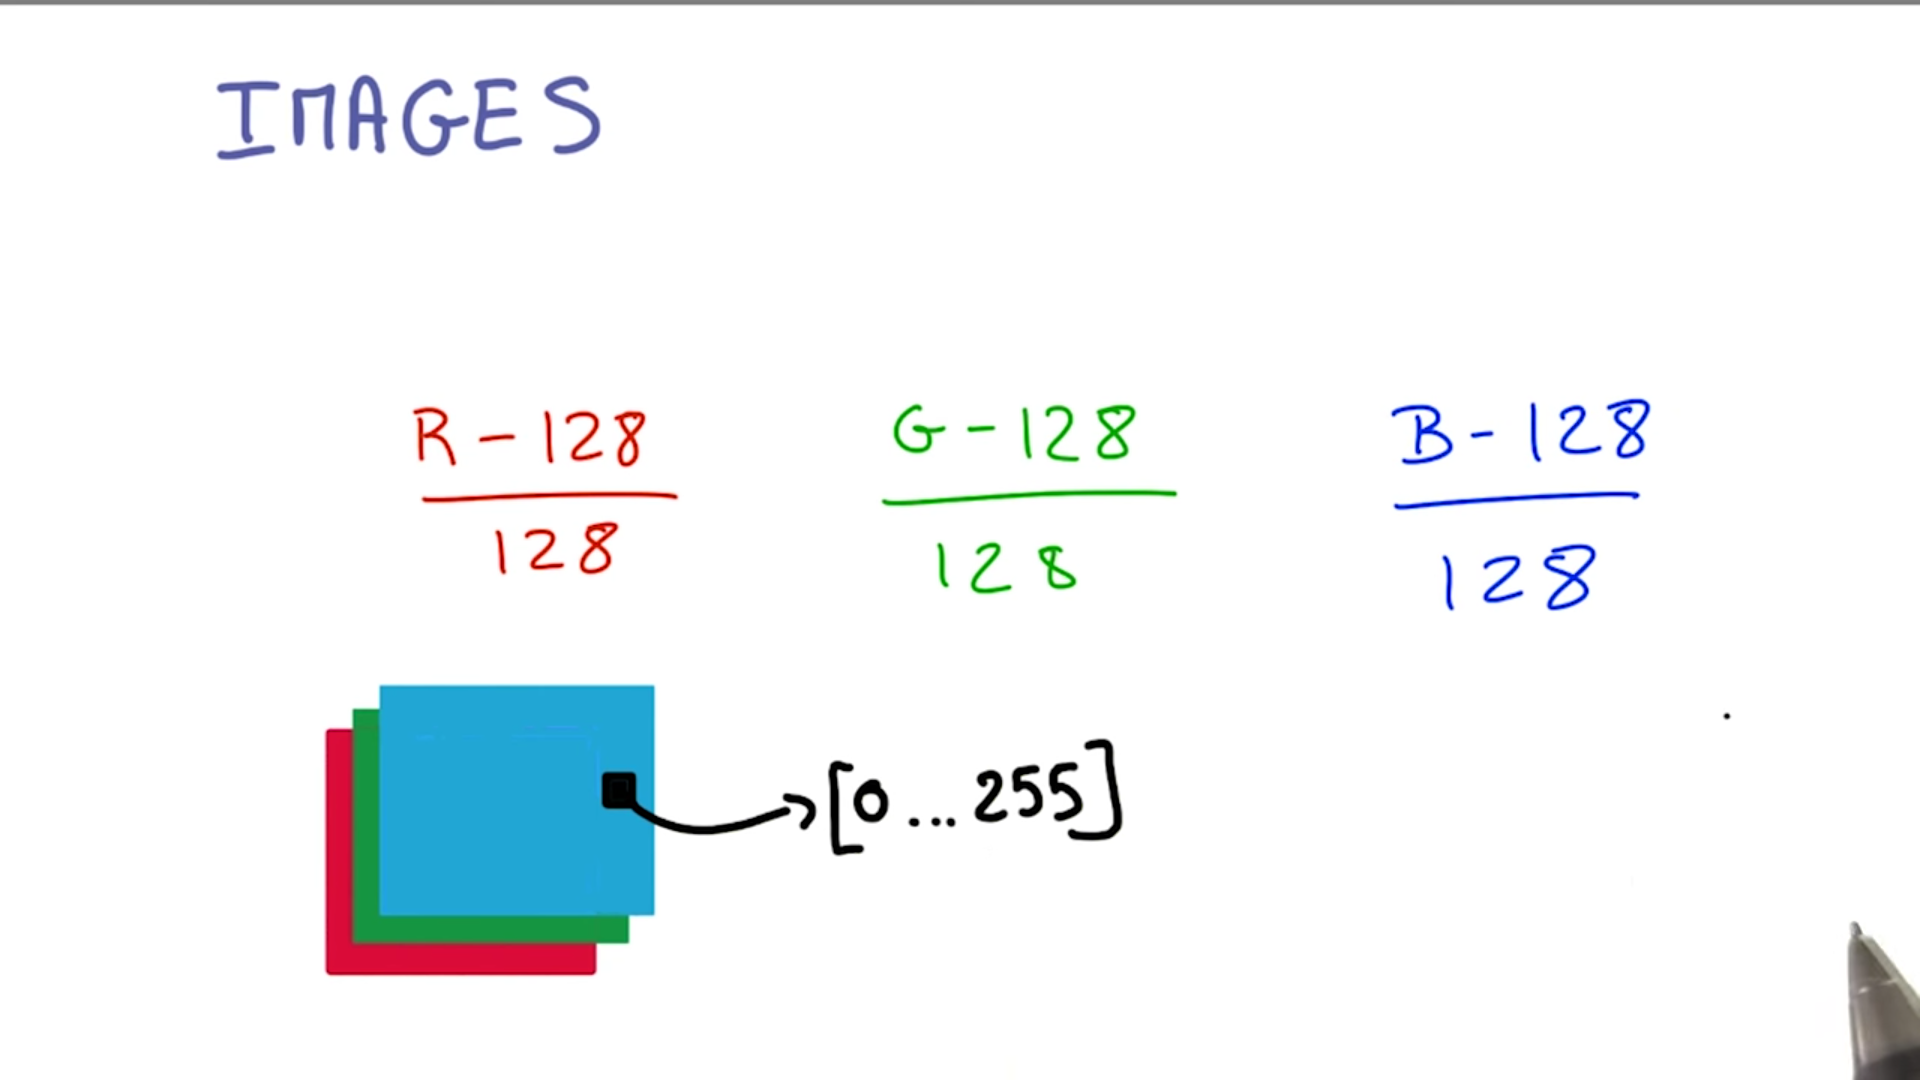 IMAGES
R - 128
128
G - 128
128
B - 128
128
[0...255]